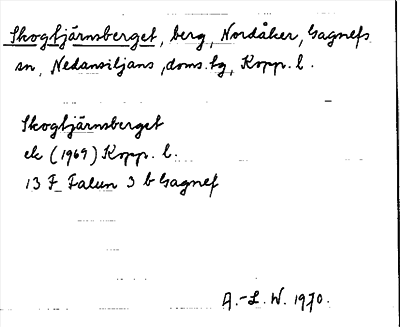 Skogtjärnsberget, berg, Nordåker, Gagnefs
sn, Nedansiljans doms.tg, Kopp. l.
Skogtjärnsberget
ek (1969) Kopp. l.
13 F Falun 3 b Gagnef
A.-L. W. 1970.